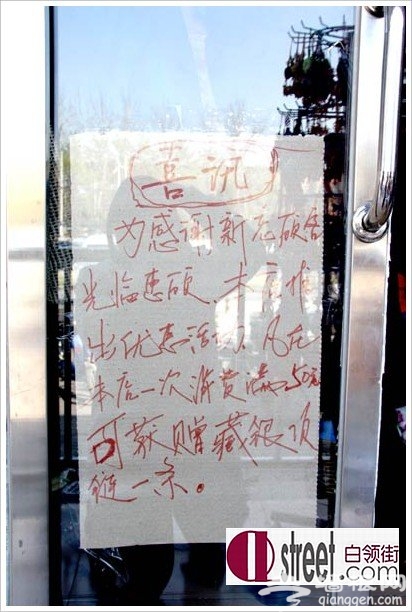 喜讯
为感谢新老顾客
光临惠顾、本店推
出优惠活动、凡在
本店一次消费满50元
可获赠藏银项
链一条。
street 白领街
.com
qianggen.com